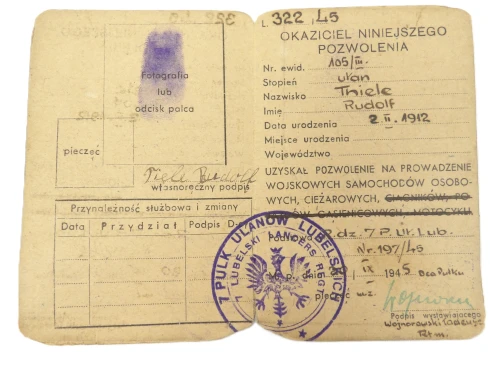 Fotografia
lub
odcisk palca
pieczęć
Tiele Rudolf
własnoręczny podpis
Przynależność służbowa i zmiany
Data Przydział Podpis D-
L 322/45
OKAZICIEL NINIEJSZEGO
POZWOLENIA
Nr. ewid. 105/III.
Stopień ułan
Nazwisko Thiele
Imię Rudolf
Data urodzenia 2. II. 1912
Miejsce urodzenia
Województwo
UZYSKAŁ POZWOLENIE NA PROWADZENIE
WOJSKOWYCH SAMOCHODÓW OSOBO-
WYCH, CIĘŻAROWYCH, CIĄGNIKÓW, PO-
GĄSIENICOWYCH, MOTOCYKLI
dz. 7 P. Uł. Lub.
Nr. 197/45
dnia IX 1945 Dca Pułku
pieczęć w.z.
Podpis wystawiającego
Wojnarowski Tadeusz
7 PUŁK UŁANÓW LUBELSKICH
LUBELSKI LANCERS REGT